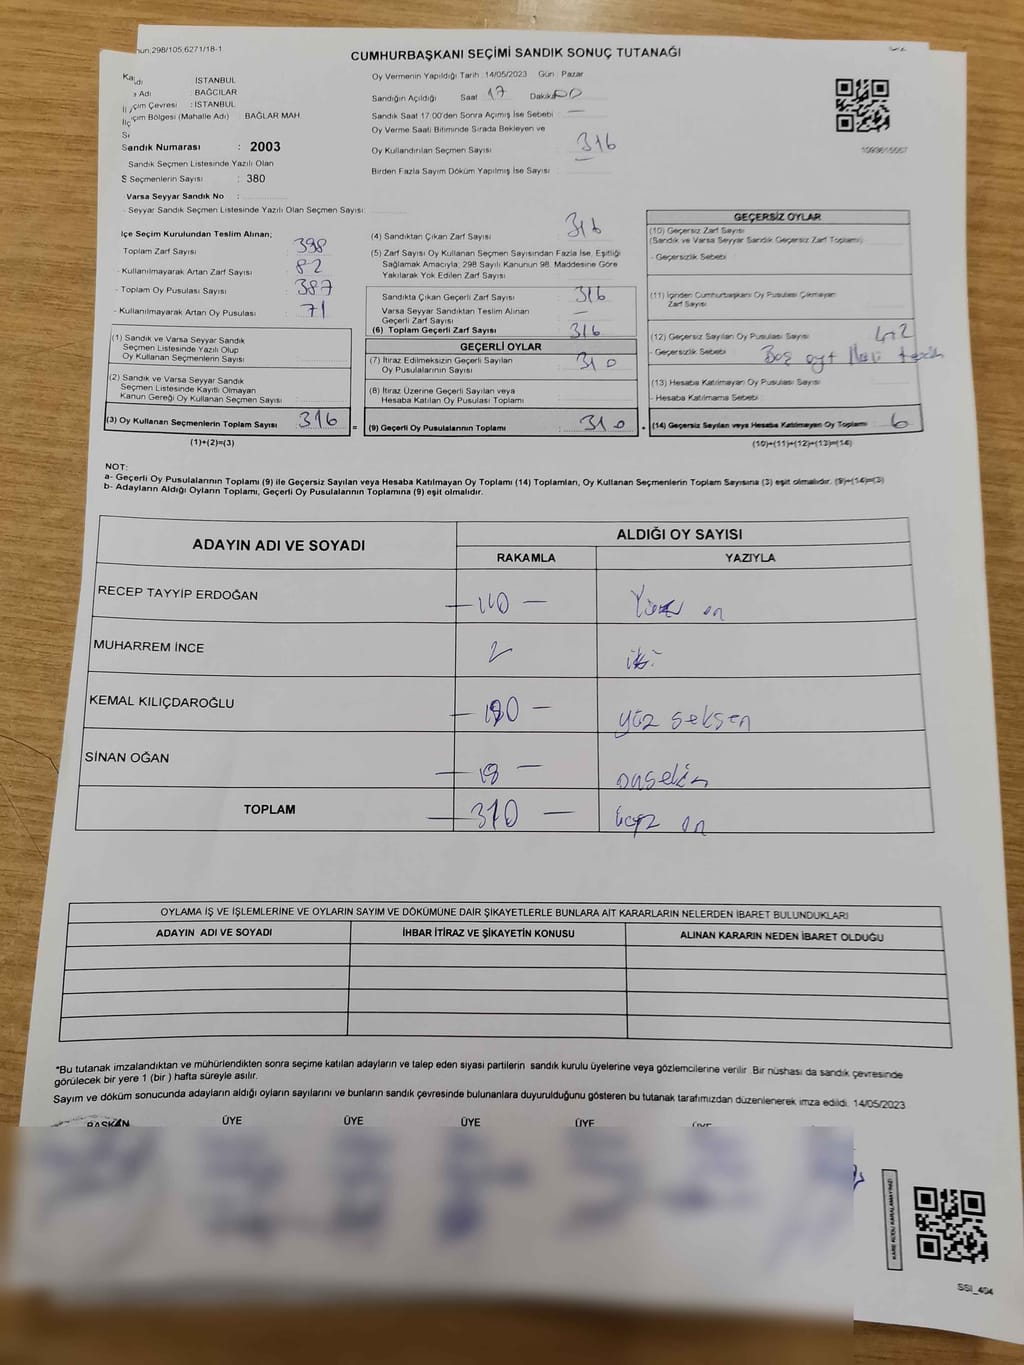 298/105;6271/18-1
CUMHURBAŞKANI SEÇİMİ SANDIK SONUÇ TUTANAĞI
İSTANBUL
Adı : BAĞCILAR
Seçim Çevresi : İSTANBUL
Seçim Bölgesi (Mahalle Adı) : BAĞLAR MAH
Sandık Numarası : 2003
Sandık Seçmen Listesinde Yazılı Olan
Seçmenlerin Sayısı : 380
Varsa Seyyar Sandık No :
Seyyar Sandık Seçmen Listesinde Yazılı Olan Seçmen Sayısı:
Oy Vermenin Yapıldığı Tarih :14/05/2023 Gün : Pazar
Sandığın Açıldığı Saat 17 Dakika 00
Sandık Saat 17:00'den Sonra Açımış İse Sebebi : —
Oy Verme Saati Bitiminde Sırada Bekleyen ve
Oy Kullandırılan Seçmen Sayısı 316
Birden Fazla Sayım Döküm Yapılmış İse Sayısı
1093615557
İlçe Seçim Kurulundan Teslim Alınan;
Toplam Zarf Sayısı : 398
- Kullanılmayarak Artan Zarf Sayısı : 82
- Toplam Oy Pusulası Sayısı : 387
- Kullanılmayarak Artan Oy Pusulası : 71
(1) Sandık ve Varsa Seyyar Sandık
Seçmen Listesinde Yazılı Olup
Oy Kullanan Seçmenlerin Sayısı
(2) Sandık ve Varsa Seyyar Sandık
Seçmen Listesinde Kayıtlı Olmayan
Kanun Gereği Oy Kullanan Seçmen Sayısı :
(3) Oy Kullanan Seçmenlerin Toplam Sayısı : 316 =
(1)+(2)=(3)
(4) Sandıktan Çıkan Zarf Sayısı 316
(5) Zarf Sayısı Oy Kullanan Seçmen Sayısından Fazla İse, Eşitliği
Sağlamak Amacıyla; 298 Sayılı Kanunun 98. Maddesine Göre
Yakılarak Yok Edilen Zarf Sayısı
Sandıkta Çıkan Geçerli Zarf Sayısı 316
Varsa Seyyar Sandıktan Teslim Alınan
Geçerli Zarf Sayısı —
(6) Toplam Geçerli Zarf Sayısı 316
GEÇERLİ OYLAR
(7) İtiraz Edilmeksizin Geçerli Sayılan
Oy Pusulalarının Sayısı : 310
(8) İtiraz Üzerine Geçerli Sayılan veya
Hesaba Katılan Oy Pusulası Toplamı
(9) Geçerli Oy Pusulalarının Toplamı : 310 +
GEÇERSİZ OYLAR
(10) Geçersiz Zarf Sayısı
(Sandık ve Varsa Seyyar Sandık Geçersiz Zarf Toplamı)
- Geçersizlik Sebebi :
(11) İçinden Cumhurbaşkanı Oy Pusulası Çıkmayan
Zarf Sayısı
(12) Geçersiz Sayılan Oy Pusulası Sayısı 4+2
- Geçersizlik Sebebi : Boş
(13) Hesaba Katılmayan Oy Pusulası Sayısı
- Hesaba Katılmama Sebebi :
(14) Geçersiz Sayılan veya Hesaba Katılmayan Oy Toplamı : 6
(10)+(11)+(12)+(13)=(14)
NOT:
a- Geçerli Oy Pusulalarının Toplamı (9) ile Geçersiz Sayılan veya Hesaba Katılmayan Oy Toplamı (14) Toplamları, Oy Kullanan Seçmenlerin Toplam Sayısına (3) eşit olmalıdır. (9)+(14)=(3)
b- Adayların Aldığı Oyların Toplamı, Geçerli Oy Pusulalarının Toplamına (9) eşit olmalıdır.
ADAYIN ADI VE SOYADI
ALDIĞI OY SAYISI
RAKAMLA YAZIYLA
RECEP TAYYİP ERDOĞAN — 110 — Yüz on
MUHARREM İNCE 2 iki
KEMAL KILIÇDAROĞLU — 180 — yüz seksen
SİNAN OĞAN — 18 — onsekiz
TOPLAM — 310 — üçyüz on
OYLAMA İŞ VE İŞLEMLERİNE VE OYLARIN SAYIM VE DÖKÜMÜNE DAİR ŞİKAYETLERLE BUNLARA AİT KARARLARIN NELERDEN İBARET BULUNDUKLARI
ADAYIN ADI VE SOYADI İHBAR İTİRAZ VE ŞİKAYETİN KONUSU ALINAN KARARIN NEDEN İBARET OLDUĞU
*Bu tutanak imzalandıktan ve mühürlendikten sonra seçime katılan adayların ve talep eden siyasi partilerin sandık kurulu üyelerine veya gözlemcilerine verilir. Bir nüshası da sandık çevresinde
görülecek bir yere 1 (bir) hafta süreyle asılır.
Sayım ve döküm sonucunda adayların aldığı oyların sayılarını ve bunların sandık çevresinde bulunanlara duyurulduğunu gösteren bu tutanak tarafımızdan düzenlenerek imza edildi. 14/05/2023
BAŞKAN ÜYE ÜYE ÜYE ÜYE ÜYE
KARE KODU KARALAMAYINIZ!
SSI_404